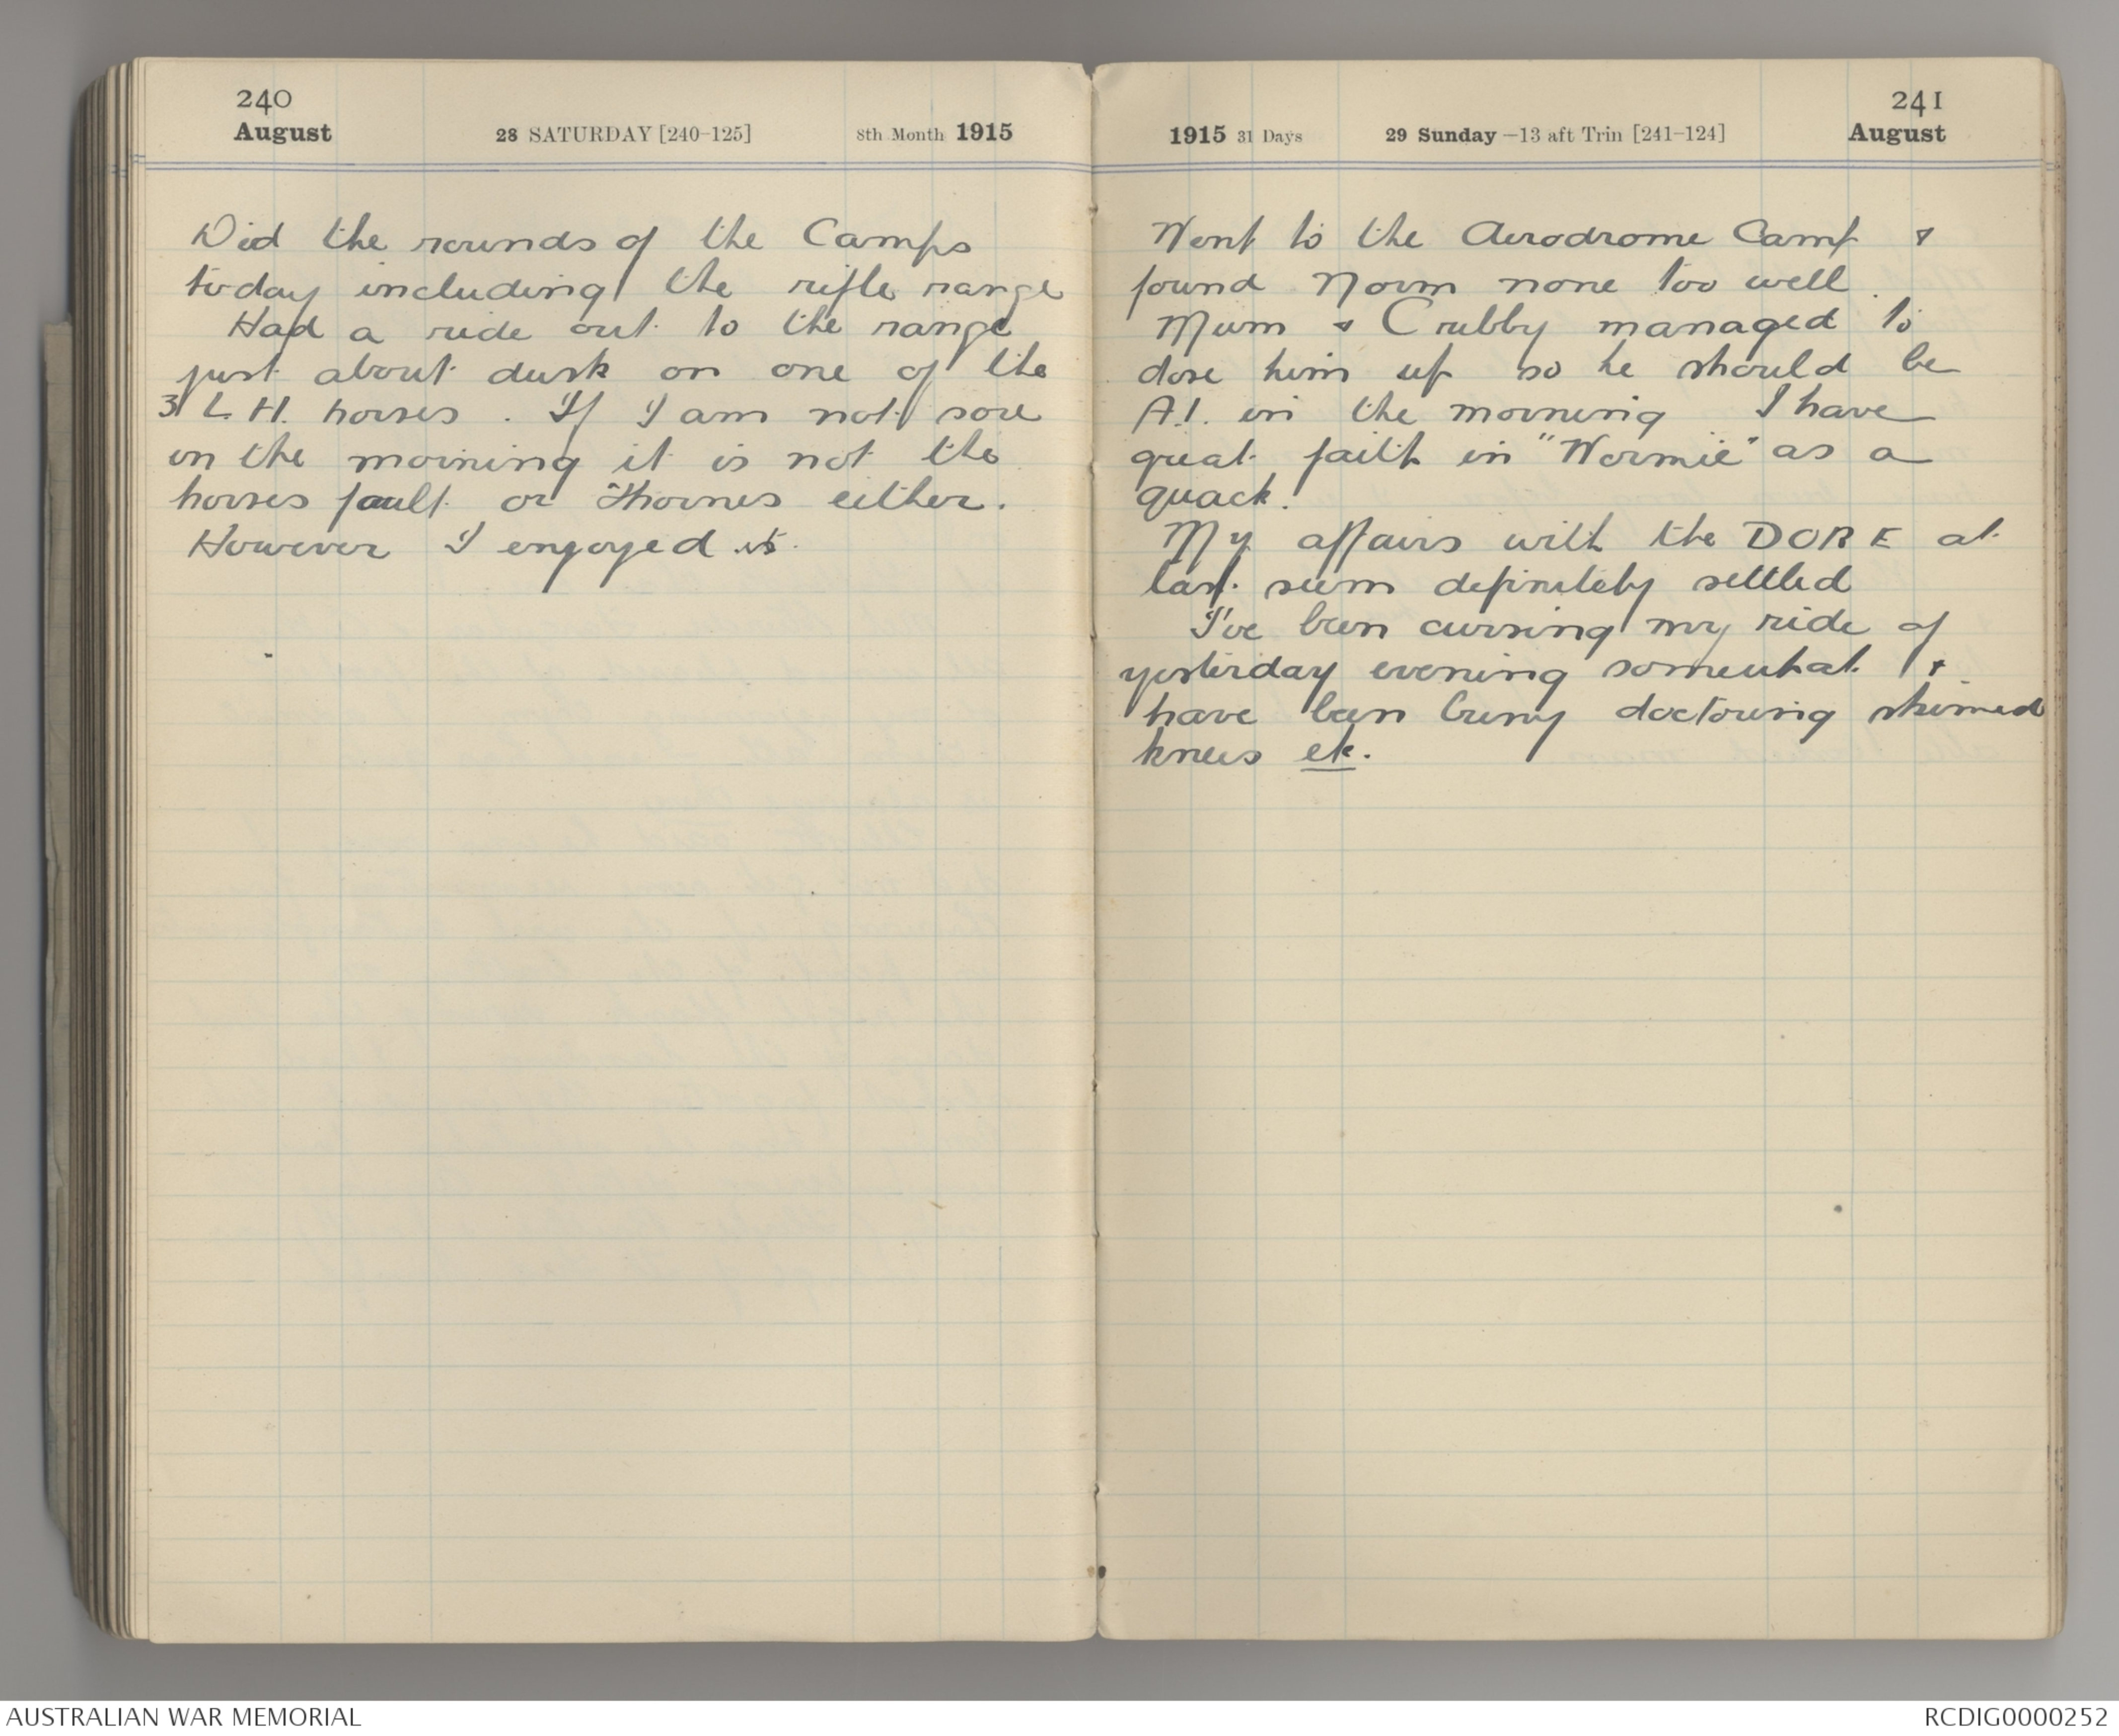 240
August 28 SATURDAY [240-125] 8th Month 1915
Did the rounds of the Camps
today including the rifle range
Had a ride out to the range
just about dusk on one of the
3 L.H. horses. If I am not sore
in the morning it is not the
horses fault or Thornes either.
However I enjoyed it.
241
1915 31 Days 29 Sunday—13 aft Trin [241-124] August
Went to the Aerodrome Camp &
found Norm none too well.
Mum & Crubby managed to
dose him up so he should be
A.1. in the morning I have
great faith in "Wormie" as a
quack.
My affairs with the DORE at
last seem definitely settled
I've been cursing my ride of
yesterday evening somewhat &
have been busy doctoring skinned
knees etc.
AUSTRALIAN WAR MEMORIAL
RCDIG0000252